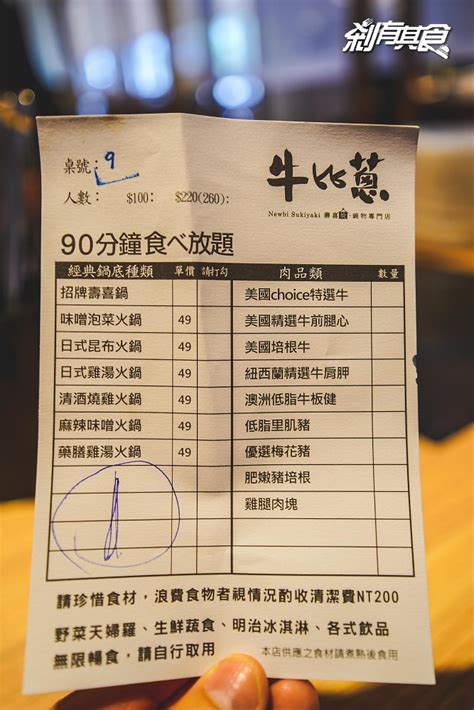 剎有其食
桌號：9
人數： $100： $220(260)：
牛比蔥
Newbi Sukiyaki 壽喜燒·鍋物專門店
90分鐘食べ放題
經典鍋底種類 單價 請打勾 肉品類 數量
招牌壽喜鍋 美國choice特選牛
味噌泡菜火鍋 49 美國精選牛前腿心
日式昆布火鍋 49 美國培根牛
日式雞湯火鍋 49 紐西蘭精選牛肩胛
清酒燒雞火鍋 49 澳洲低脂牛板腱
麻辣味噌火鍋 49 低脂里肌豬
藥膳雞湯火鍋 49 優選梅花豬
肥嫩豬培根
雞腿肉塊
請珍惜食材，浪費食物者視情況酌收清潔費NT200
野菜天婦羅、生鮮蔬食、明治冰淇淋、各式飲品
無限暢食，請自行取用 本店供應之食材請煮熟後食用